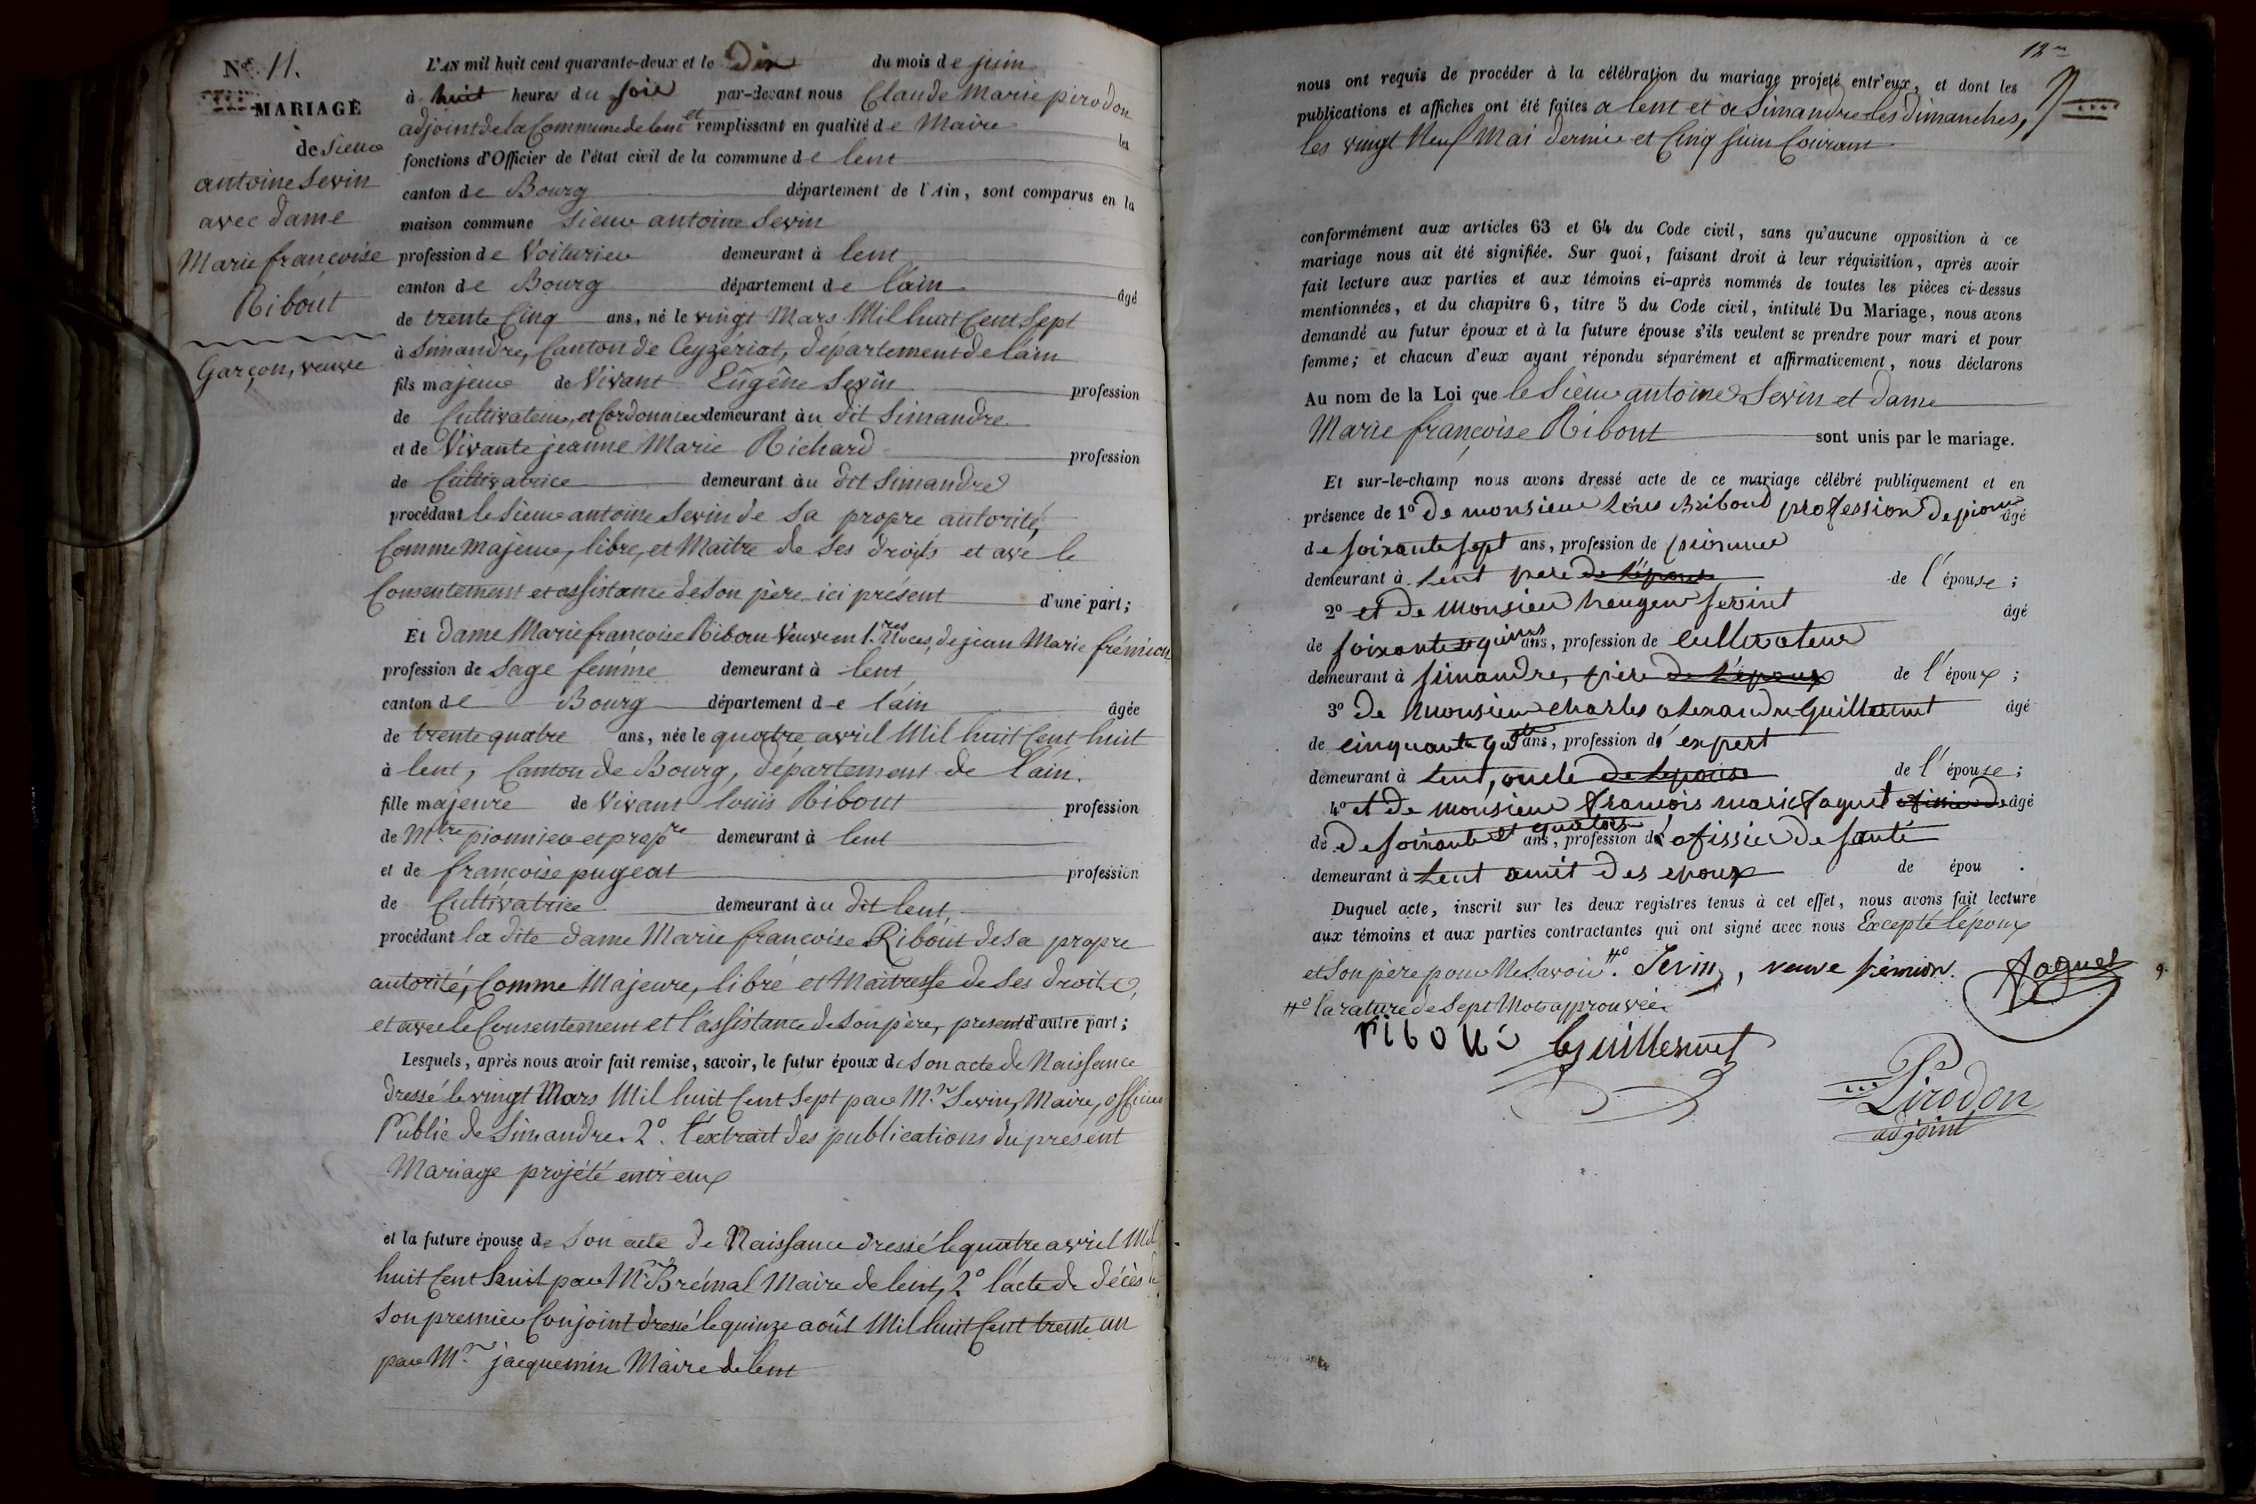 N° 11.
MARIAGE
de Sieur
antoine Sevin
avec dame
Marie françoise
Ribout
Garçon, veuve
L'AN mil huit cent quarante-deux et le Dix du mois de juin
à huit heures du soir par-devant nous Claude Marie pirodon
adjoint de la Commune de lent et remplissant en qualité de Maire les
fonctions d'Officier de l'état civil de la commune de lent
canton de Bourg département de l'Ain, sont comparus en la
maison commune Sieur antoine Sevin
profession de Voiturier demeurant à lent
canton de Bourg département de l'ain âgé
de trente Cinq ans, né le vingt Mars Mil huit Cent Sept
à Simandre, Canton de Ceyzériat, département de l'ain
fils majeur de Vivant Eugène Sevin profession
de Cultivateur, et Cordonnier demeurant àu dit Simandre
et de Vivante jeanne Marie Richard profession
de Cultivatrice demeurant àu dit Simandre
procédant le Sieur antoine Sevin de sa propre autorité,
Comme majeur, libre, et Maitre de ses droits et avec le
Consentement et assistance de son père ici présent d'une part;
Et dame Marie françoise Ribout Veuve en 1.res Noces, de jean Marie frémion
profession de Sage femme demeurant à lent
canton de Bourg département de l'ain âgée
de trente quatre ans, née le quatre avril Mil huit Cent huit
à lent, Canton de Bourg, département de l'ain.
fille majeure de Vivant louis Ribout profession
de M.tre pionnier et prop.re demeurant à lent
et de françoise pugeat profession
de Cultivatrice demeurant àu dit lent,
procédant la dite dame Marie françoise Ribout de sa propre
autorité, Comme Majeure, libre et Maitresse de ses droits,
et avec le Consentement et l'assistance de son père, présent d'autre part;
Lesquels, après nous avoir fait remise, savoir, le futur époux de son acte de Naissance
dressé le vingt Mars Mil huit Cent Sept par M.r Sevin, Maire, officier
Public de Simandre. 2°. l'extrait des publications du présent
Mariage projété entr'eux
et la future épouse de Son acte de Naissance dressé le quatre avril Mil
huit Cent huit par M.r Brémal Maire de lent, 2° l'acte de décès de
Son premier Conjoint dressé le quinze août Mil huit Cent trente un
par M.r jacquemin Maire de lent
12
nous ont requis de procéder à la célébration du mariage projeté entr'eux, et dont les
publications et affiches ont été faites a lent et a Simandre les dimanches,
les vingt Neuf Mai dernier et Cinq juin Courant
conformément aux articles 63 et 64 du Code civil, sans qu'aucune opposition à ce
mariage nous ait été signifiée. Sur quoi, faisant droit à leur réquisition, après avoir
fait lecture aux parties et aux témoins ci-après nommés de toutes les pièces ci-dessus
mentionnées, et du chapitre 6, titre 5 du Code civil, intitulé Du Mariage, nous avons
demandé au futur époux et à la future épouse s'ils veulent se prendre pour mari et pour
femme; et chacun d'eux ayant répondu séparément et affirmativement, nous déclarons
Au nom de la Loi que le Sieur antoine Sevin et dame
Marie françoise Ribout sont unis par le mariage.
Et sur-le-champ nous avons dressé acte de ce mariage célébré publiquement et en
présence de 1° de monsieur Louis Riboud profession de âgé
de soixante sept ans, profession de pionnier
demeurant à Lent père de l'épouse de l'épouse;
2° et de monsieur heugene sevint âgé
de soixante quins ans, profession de cultivateur
demeurant à simandre, père de l'époux de l'époux;
3° de monsieur charles alexandre Guillermet âgé
de cinquante ans, profession d'expert
demeurant à Lent, oncle de l'epouse de l'épouse;
4° et de monsieur francois marie faguet âgé
de de soixante et quators ans, profession d'ofissier de santé
demeurant à Lent amit des epoux de épou .
Duquel acte, inscrit sur les deux registres tenus à cet effet, nous avons fait lecture
aux témoins et aux parties contractantes qui ont signé avec nous Excepté l'époux
et son père pour Ne Savoir. Sevin, veuve frémion. Faguet
la rature de Sept Mots approuvée
ribout Guillermet
Pirodon
adjoint